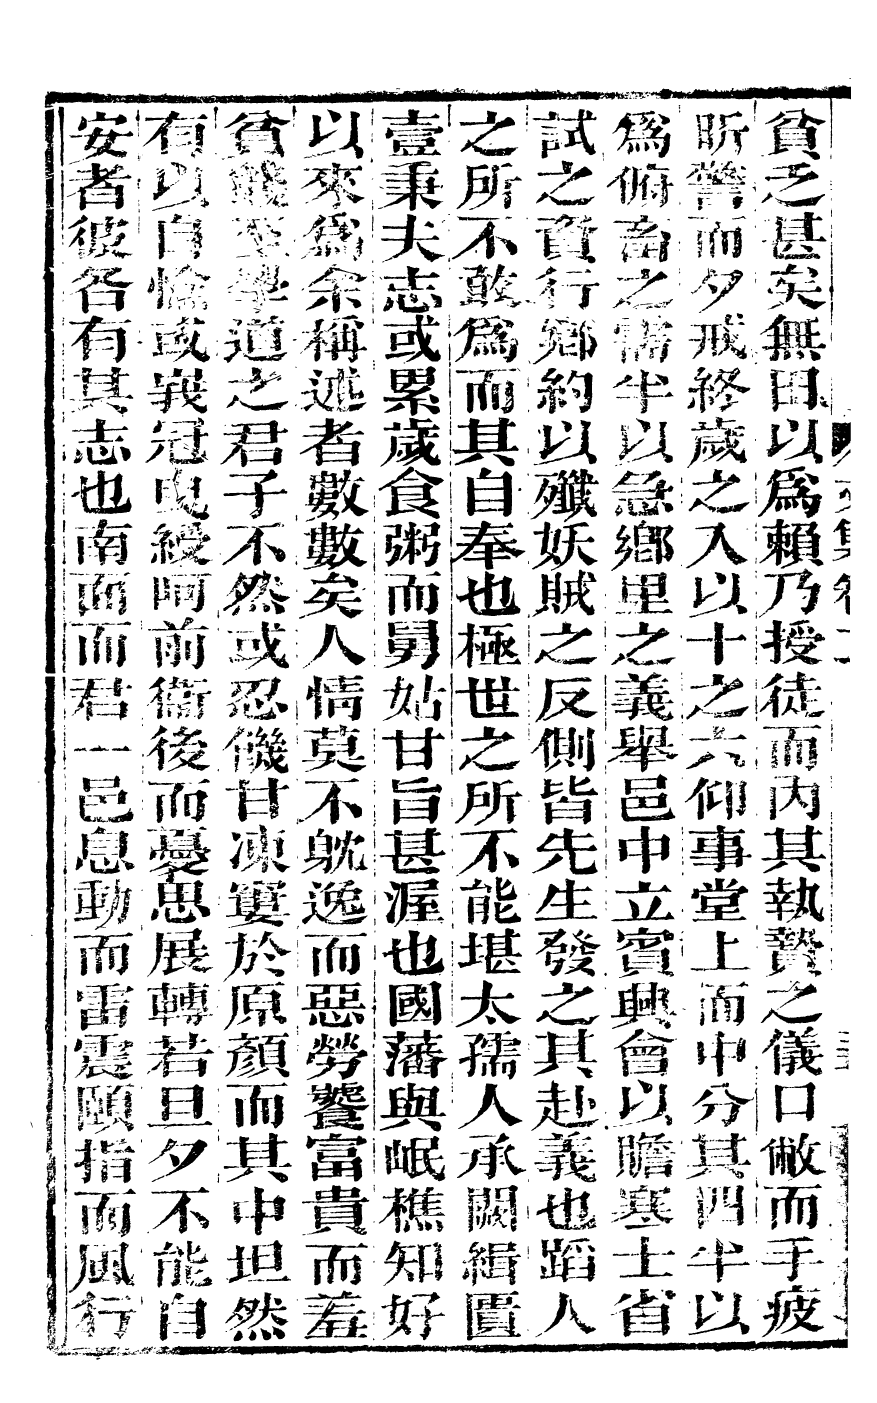 貧乏甚矣無田以爲賴乃授徒而内其執贄之儀口敝而手疲
昕警而夕戒終歲之入以十之六仰事堂上而中分其四半以
爲俯畜之需半以急鄉里之義舉邑中立賓興會以贍寒士省
試之資行鄉約以殲妖賊之反側皆先生發之其赴義也蹈人
之所不敢爲而其自奉也極世之所不能堪太孺人承闕緝匱
壹秉夫志或累歲食粥而舅姑甘旨甚渥也國藩與岷樵知好
以來爲余稱述者數數矣人情莫不躭逸而惡勞饕富貴而羞
貧賤至學道之君子不然或忍饑甘凍窶於原顏而其中坦然
有以自愉或峩冠曳綬呵前衞後而憂思展轉若旦夕不能自
安者彼各有其志也南面而君一邑息動而雷震頤指而風行